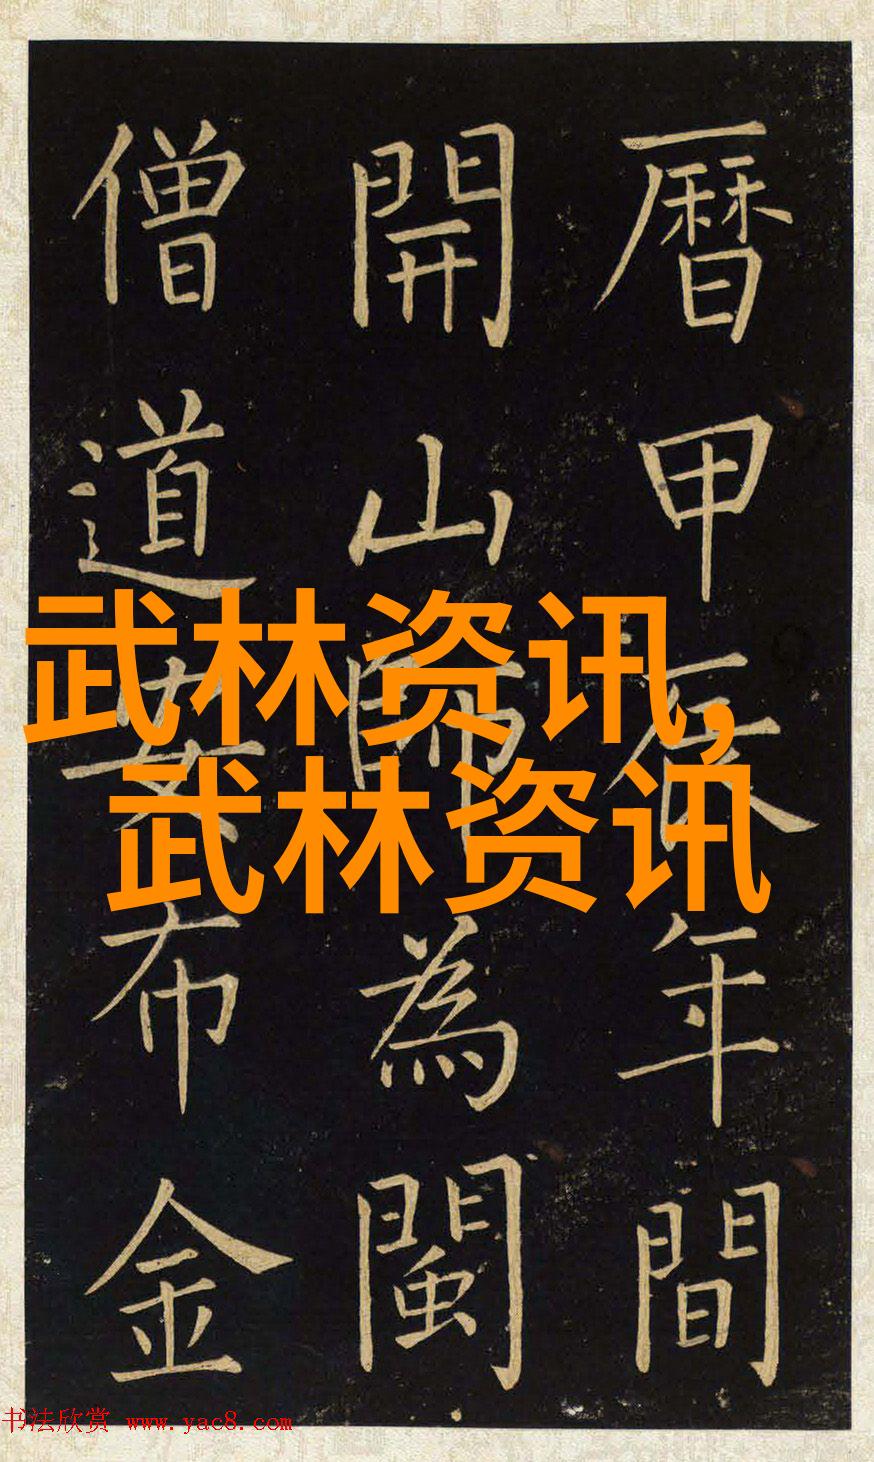 曆甲辰年間
開山師為閩
僧道安布金
武林资讯,
武林资讯
书法欣赏 www.yac8.com